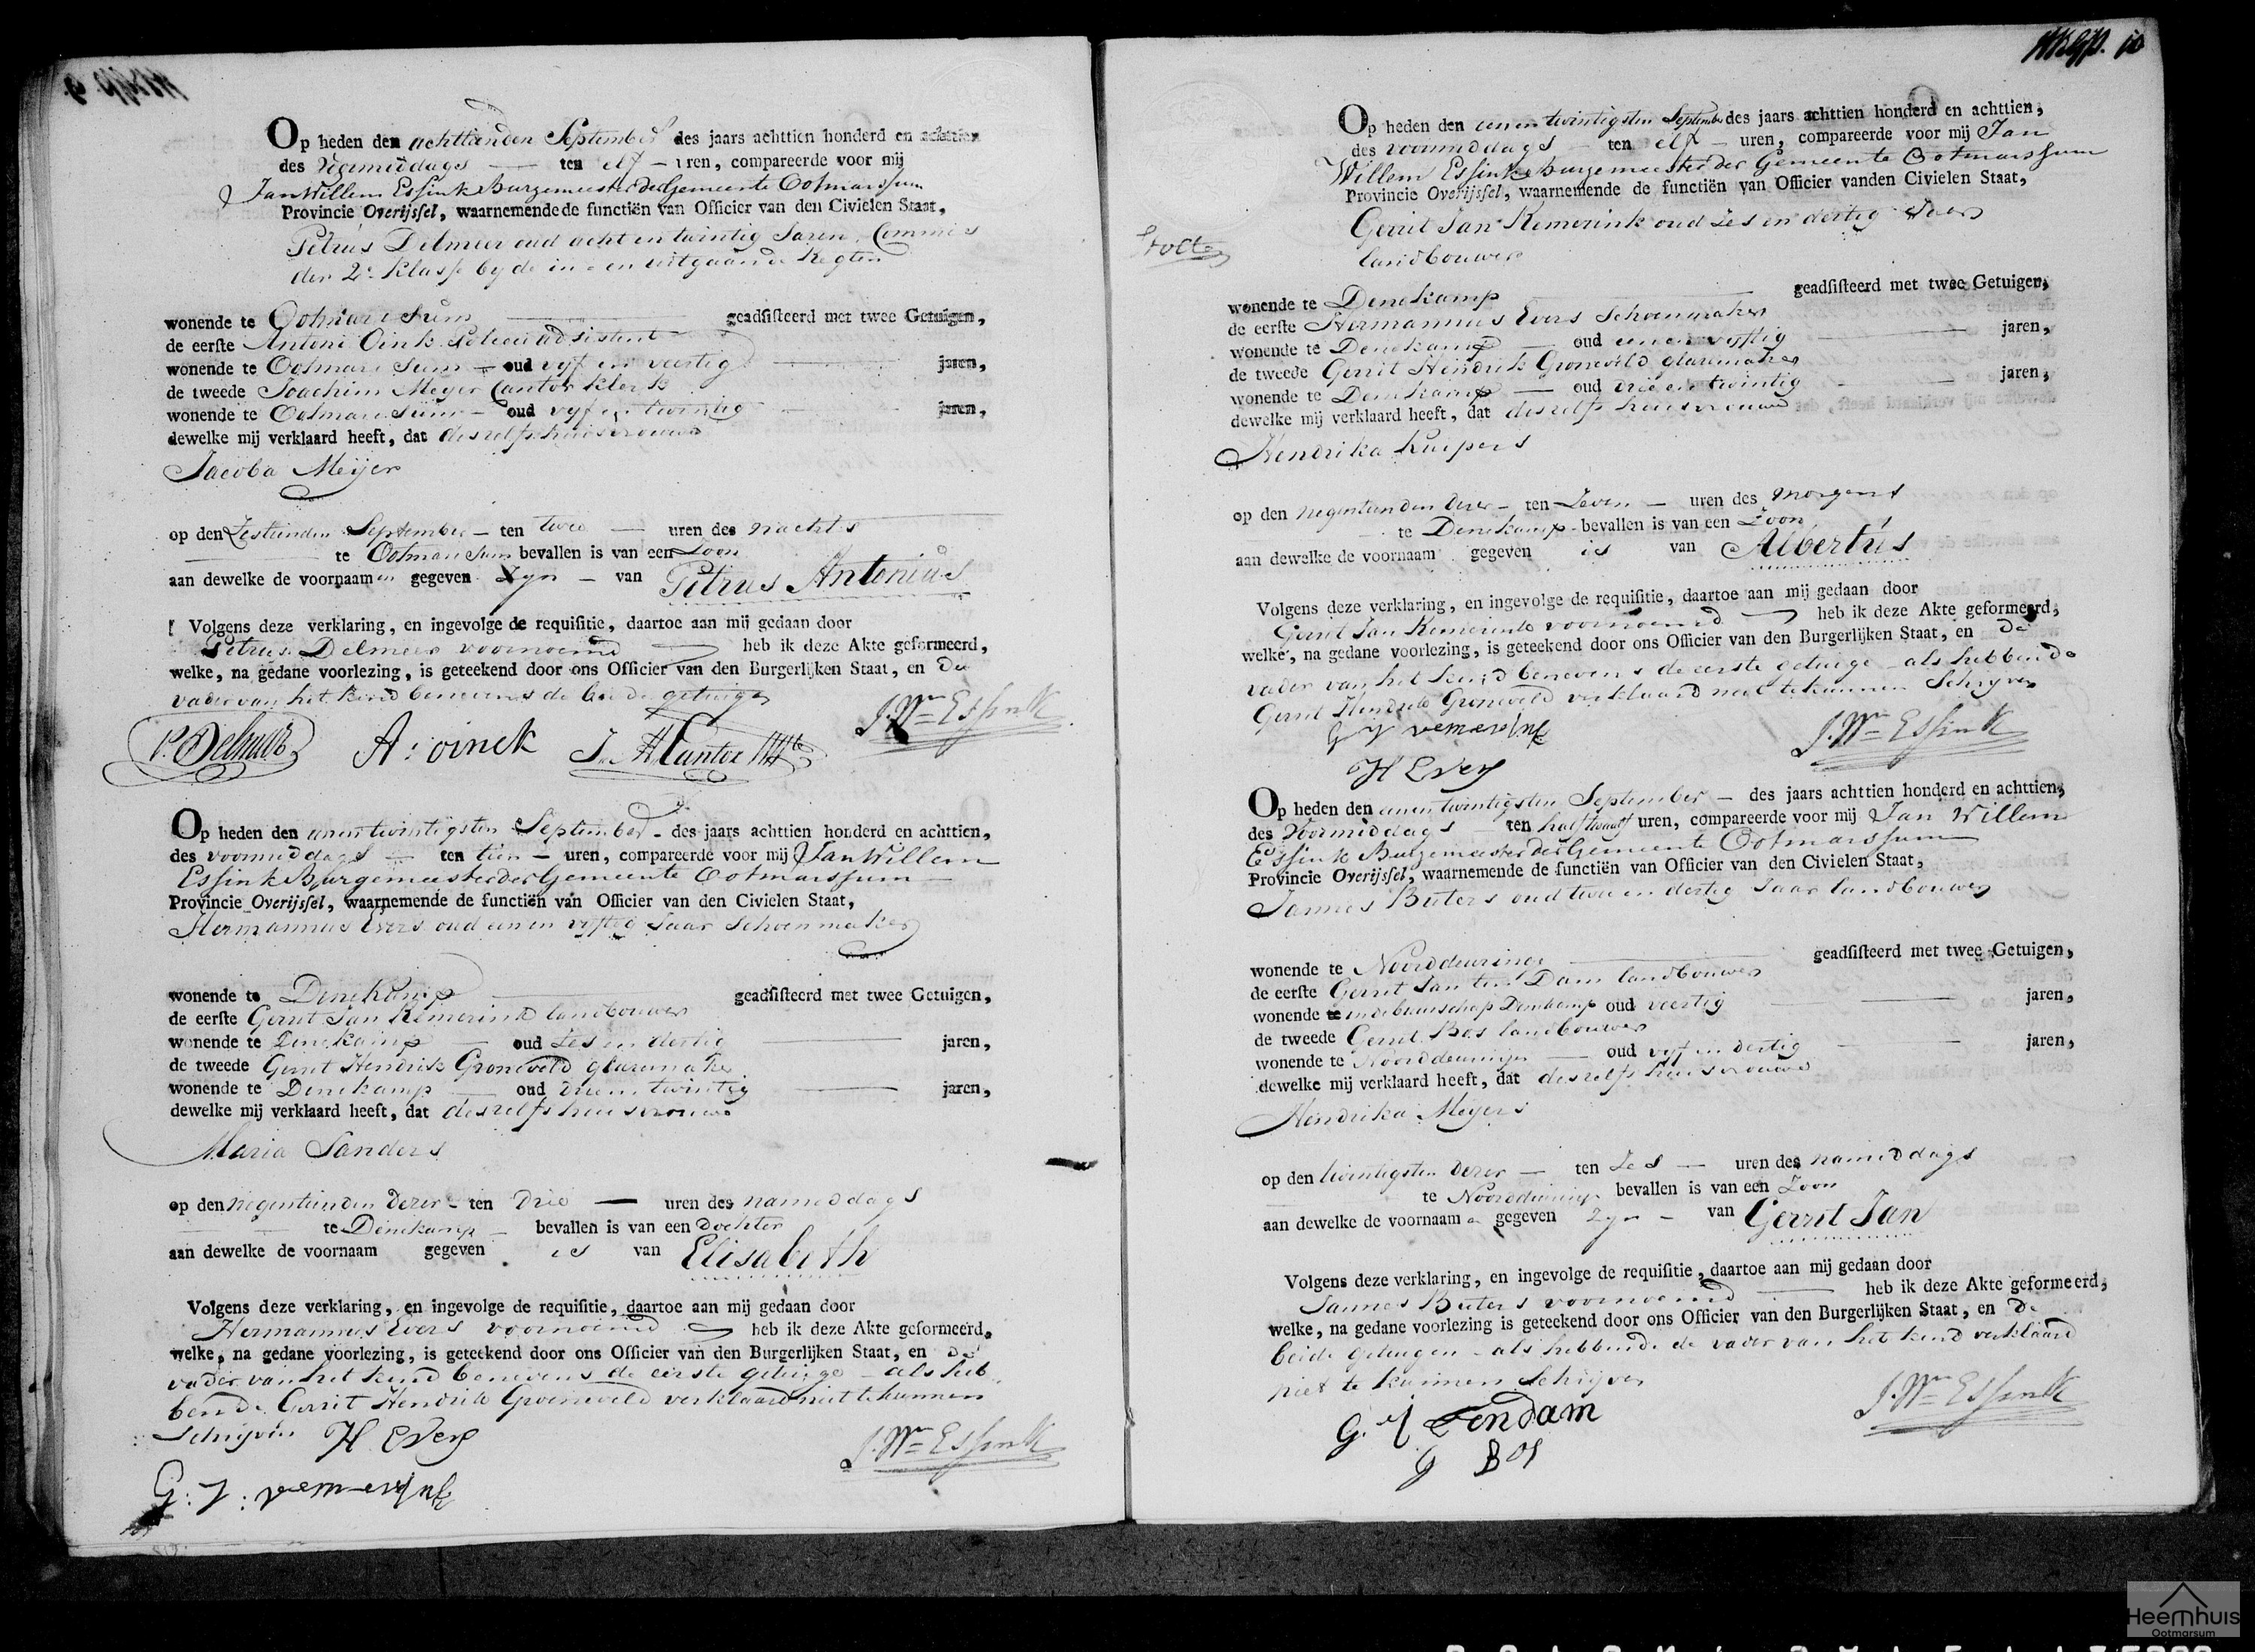 Op heden den achttienden September des jaars achttien honderd en achttien
des Voormiddags — ten elf — uren, compareerde voor mij
Jan Willem Essink Burgemeester der Gemeente Ootmarssum
Provincie Overijsſel, waarnemende de functiën van Officier van den Civielen Staat,
Petrus Delmeer oud acht en twintig Jaren, Commies
der 2e Klasse by de in- en uitgaande Regten
wonende te Ootmarssum geadſiſteerd met twee Getuigen,
de eerſte Antoni Oink Policie adsistent
wonende te Ootmarssum — oud vyf en veertig jaren,
de tweede Joachim Meyer Cantor klerk
wonende te Ootmarssum — oud vyf en twintig jaren,
dewelke mij verklaard heeft, dat deszelfs huisvrouwe
Jacoba Meijer
op den Zestienden September — ten twee — uren des nachts
te Ootmarssum bevallen is van een Zoon
aan dewelke de voornaamen gegeven Zyn — van Petrus Antonius
Volgens deze verklaring, en ingevolge de requiſitie, daartoe aan mij gedaan door
Petrus Delmeer voornoemd heb ik deze Akte geformeerd,
welke, na gedane voorlezing, is geteekend door ons Officier van den Burgerlijken Staat, en de
vader van het kind benevens de beide getuigen
J. Wm Essink
P. Delmeer A: oinck J. M Cantor
Op heden den eenentwintigsten September — des jaars achttien honderd en achttien,
des voormiddags — ten tien — uren, compareerde voor mij Jan Willem
Essink Burgemeester der Gemeente Ootmarssum
Provincie Overijsſel, waarnemende de functiën van Officier van den Civielen Staat,
Hermannus Evers oud een en vyftig Jaar Schoenmaker
wonende te Denekamp geadſiſteerd met twee Getuigen,
de eerſte Gerrit Jan Kemerink landbouwer
wonende te Denekamp — oud Zes en dertig jaren,
de tweede Gerrit Hendrik Groneveld glazemaker
wonende te Denekamp — oud drie en twintig jaren,
dewelke mij verklaard heeft, dat deszelfs huisvrouwe
Maria Sanders
op den negentienden dezer — ten Drie — uren des namiddags
te Denekamp — bevallen is van een Dochter
aan dewelke de voornaam gegeven is van Elisabeth
Volgens deze verklaring, en ingevolge de requiſitie, daartoe aan mij gedaan door
Hermannus Evers voornoemd heb ik deze Akte geformeerd,
welke, na gedane voorlezing, is geteekend door ons Officier van den Burgerlijken Staat, en de
vader van het kind benevens de eerste getuige — als heb
bende Gerrit Hendrik Groeneveld verklaard niet te kunnen
Schryven H. Evers
J. Wm Essink
G: J: Kemerink
Op heden den eenentwintigsten September des jaars achttien honderd en achttien,
des voormiddags — ten elf — uren, compareerde voor mij Jan
Willem Essink Burgemeester der Gemeente Ootmarssum
Provincie Overijsſel, waarnemende de functiën van Officier vanden Civielen Staat,
Gerrit Jan Kemerink oud Zes en dertig Jaar
landbouwer
wonende te Denekamp geadſiſteerd met twee Getuigen,
de eerſte Hermannus Evers Schoenmaker
wonende te Denekamp — oud een en vyftig jaren,
de tweede Gerrit Hendrik Groneveld glazemaker
wonende te Denekamp — oud drie en twintig jaren,
dewelke mij verklaard heeft, dat deszelfs huisvrouwe
Hendrika Kuipers
op den negentienden dezer — ten Zeven — uren des morgens
te Denekamp bevallen is van een Zoon
aan dewelke de voornaam gegeven is van Albertus
Volgens deze verklaring, en ingevolge de requiſitie, daartoe aan mij gedaan door
Gerrit Jan Kemerink voornoemd heb ik deze Akte geformeerd,
welke, na gedane voorlezing, is geteekend door ons Officier van den Burgerlijken Staat, en de
vader van het kind benevens de eerste getuige — als hebbende
Gerrit Hendrik Groneveld verklaard niet te kunnen Schryven
G J Kemerink
J. Wm Essink
H Evers
Op heden den eenentwintigsten September — des jaars achttien honderd en achttien,
des Voormiddags — ten half twaalf uren, compareerde voor mij Jan Willem
Essink Burgemeester der Gemeente Ootmarssum
Provincie Overijsſel, waarnemende de functiën van Officier van den Civielen Staat,
Jannes Buters oud twee en dertig Jaar landbouwer
wonende te Noorddeuringe geadſiſteerd met twee Getuigen,
de eerſte Gerrit Jan ten Dam landbouwer
wonende in de buurschap Denekamp oud veertig jaren,
de tweede Gerrit Bos landbouwer
wonende te Noorddeuringe — oud vyf en dertig jaren,
dewelke mij verklaard heeft, dat deszelfs huisvrouwe
Hendrika Meyers
op den twintigsten dezer — ten Zes — uren des namiddags
te Noorddeuringe bevallen is van een Zoon
aan dewelke de voornaamen gegeven Zyn — van Gerrit Jan
Volgens deze verklaring, en ingevolge de requiſitie, daartoe aan mij gedaan door
Jannes Buters voornoemd heb ik deze Akte geformeerd,
welke, na gedane voorlezing is geteekend door ons Officier van den Burgerlijken Staat, en de
beide getuigen — als hebbende de vader van het kind verklaard
niet te kunnen Schryven
J. Wm Essink
G. J tendam
G Bos
Heemhuis
Ootmarsum